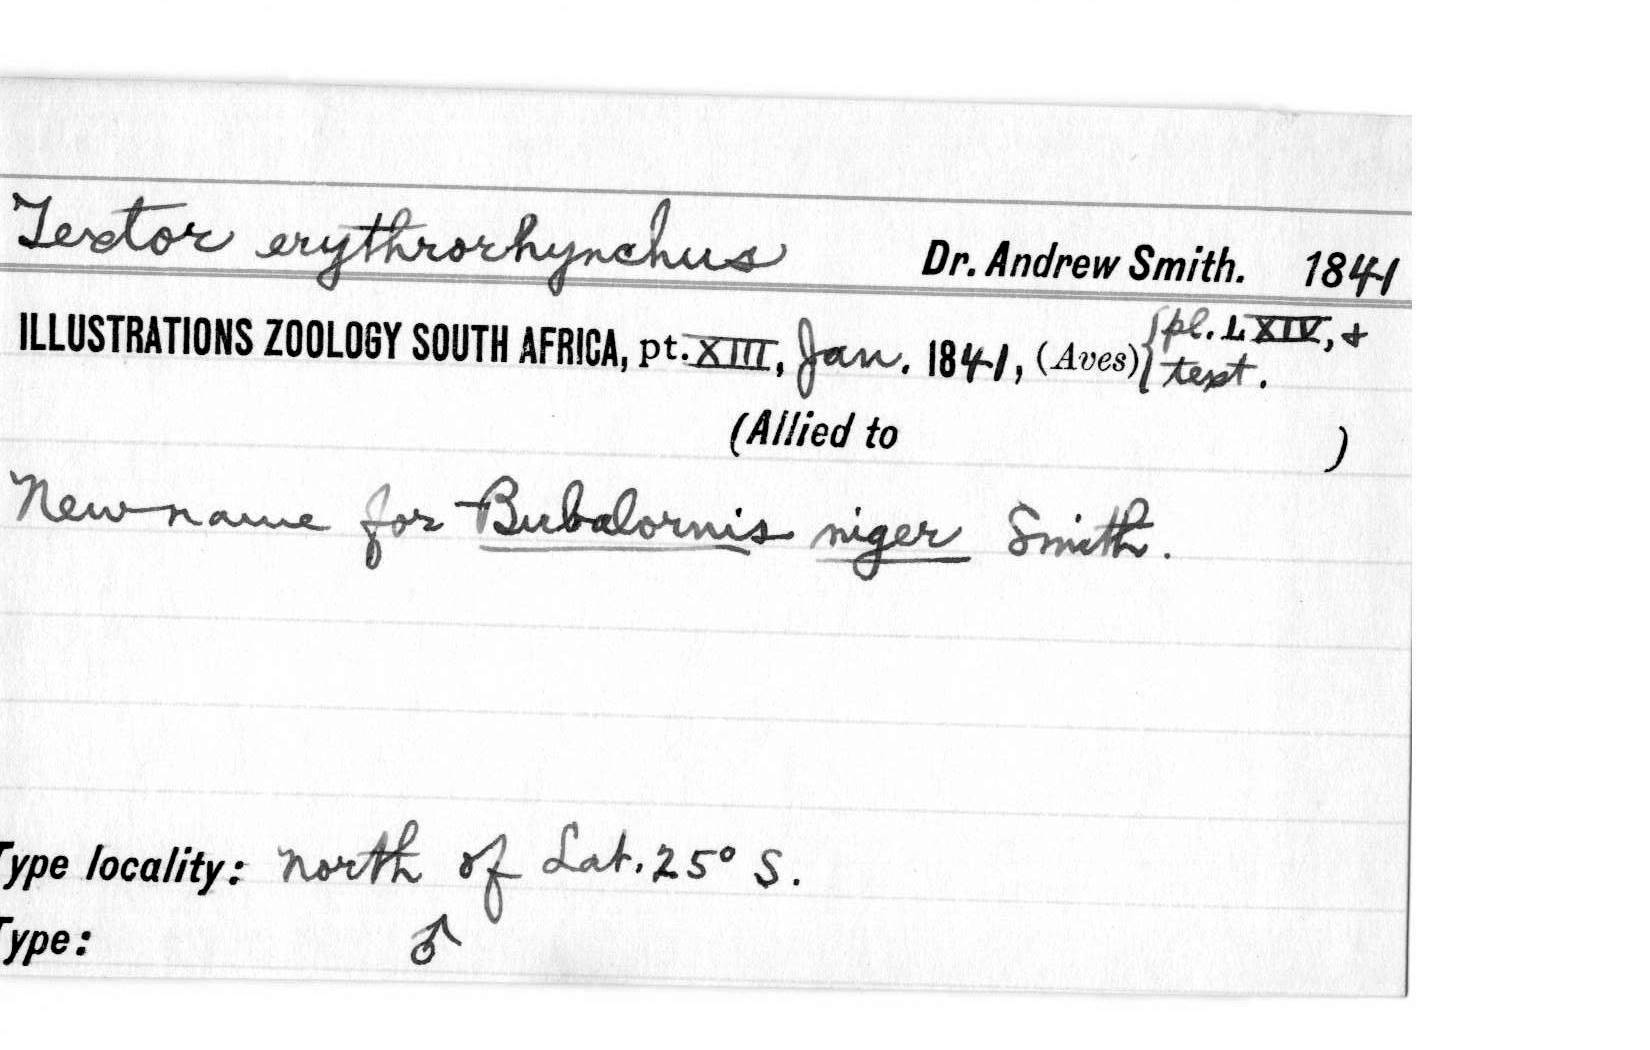 Textor erythrorhynchus Dr. Andrew Smith. 1841
ILLUSTRATIONS ZOOLOGY SOUTH AFRICA, pt. XIII, Jan. 1841, (Aves) { pl. LXIV, &
text.
(Allied to )
New name for Bubalornis niger Smith.
Type locality: north of Lat. 25° S.
Type: ♂